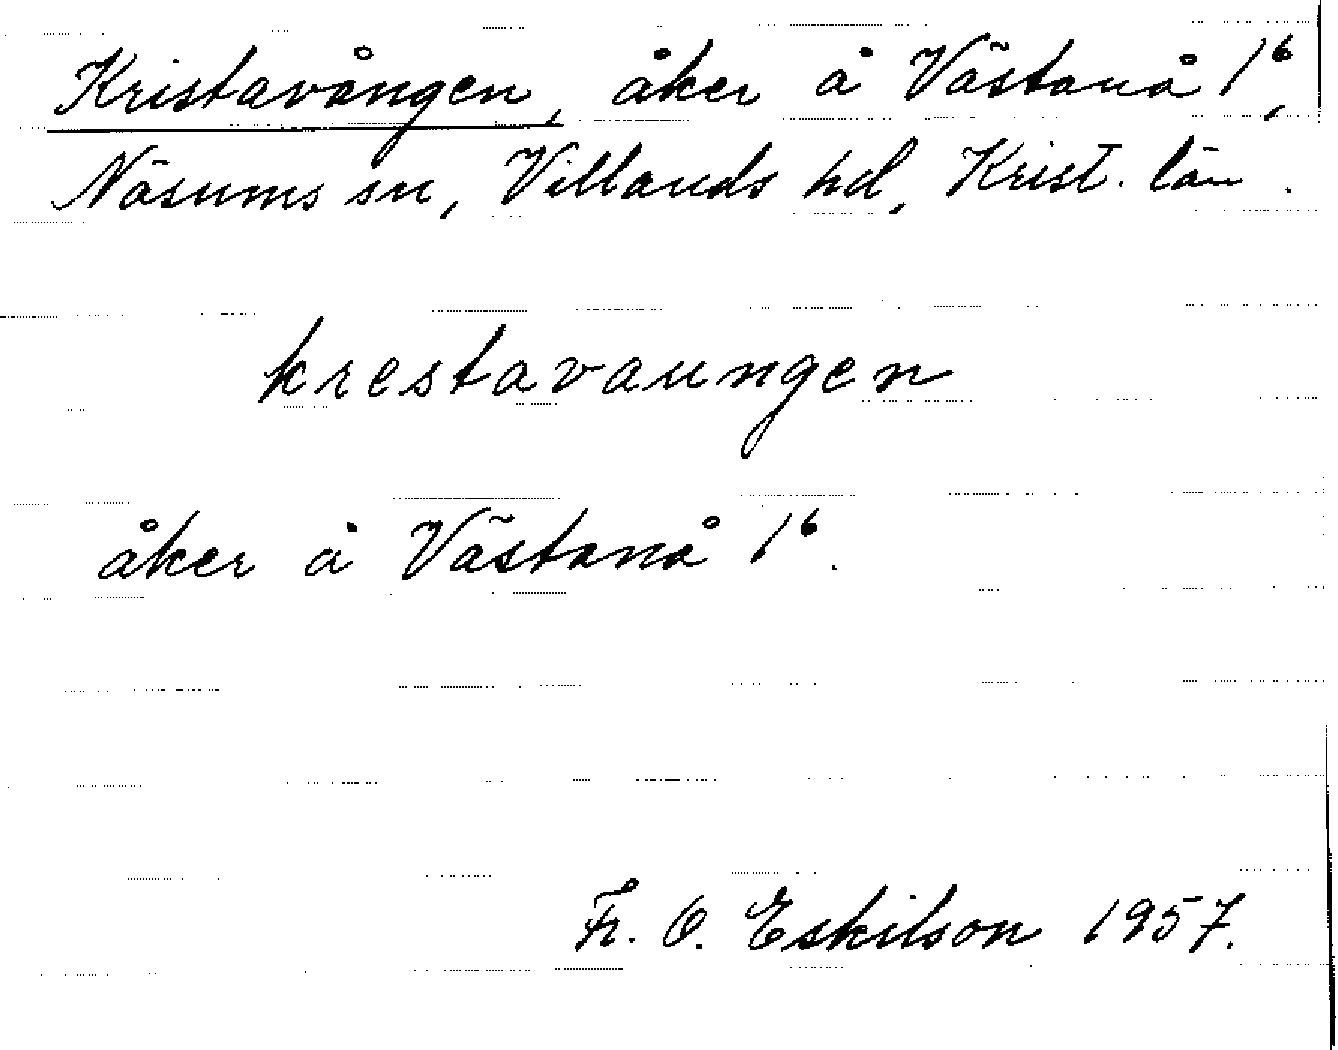 Kristavången, åker å Västanå 1⁶,
Näsums sn, Villands hd, Krist. län.
krestavaungen
åker å Västanå 1⁶.
Fr. O. Eskilson 1957.